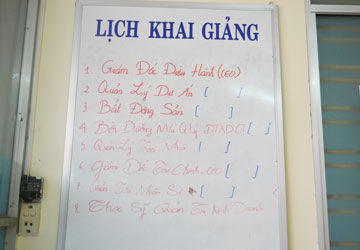 LỊCH KHAI GIẢNG
1. Giám Đốc Điều Hành (CEO)
2. Quản Lý Dự Án [ ]
3. Bất Động Sản [ ]
4. Bồi Dưỡng [ ]
5 Quản Lý Tòa Nhà [ ]
6 Giám Đốc Tài Chính - CFO [ ]
7 Quản Trị Nhân Sự [ ]
8. Thạc Sỹ Quản Trị Kinh Doanh